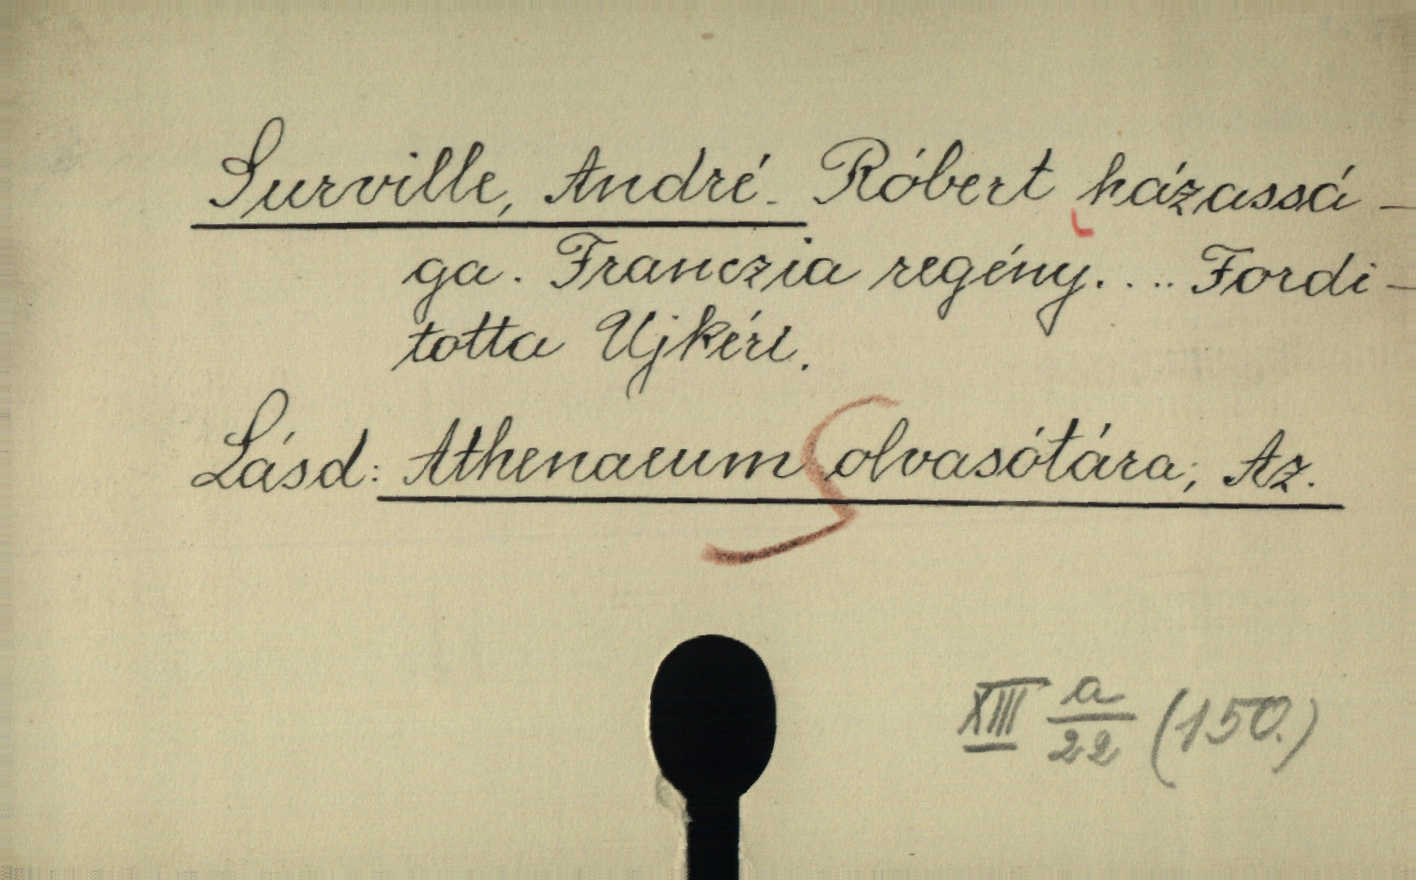 Surville, André. Róbert házassá-
ga. Franczia regény. ... Fordi-
totta Ujkéri.
Lásd: Athenaeum olvasótára, Az.
XIII a/22 (150.)